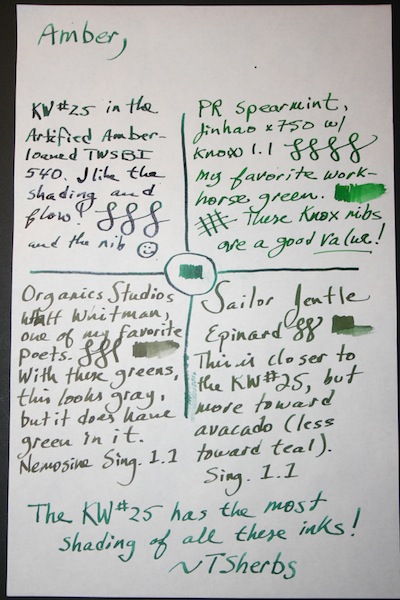 Amber,
KW #25 in the
Artified Amber-
loaned TWSBI
540. I like the
shading and
flow!
and the nib
PR Spearmint,
Jinhao x750 w/
Knox 1.1
my favorite work-
horse green.
These Knox nibs
are a good value!
Organics Studios
Walt Whitman,
one of my favorite
poets.
With these greens,
this looks gray,
but it does have
green in it.
Nemosine Sing. 1.1
Sailor Jentle
Epinard
This is closer to
the KW #25, but
more toward
avacado (less
toward teal).
Sing. 1.1
The KW #25 has the most
shading of all these inks!
~TSherbs